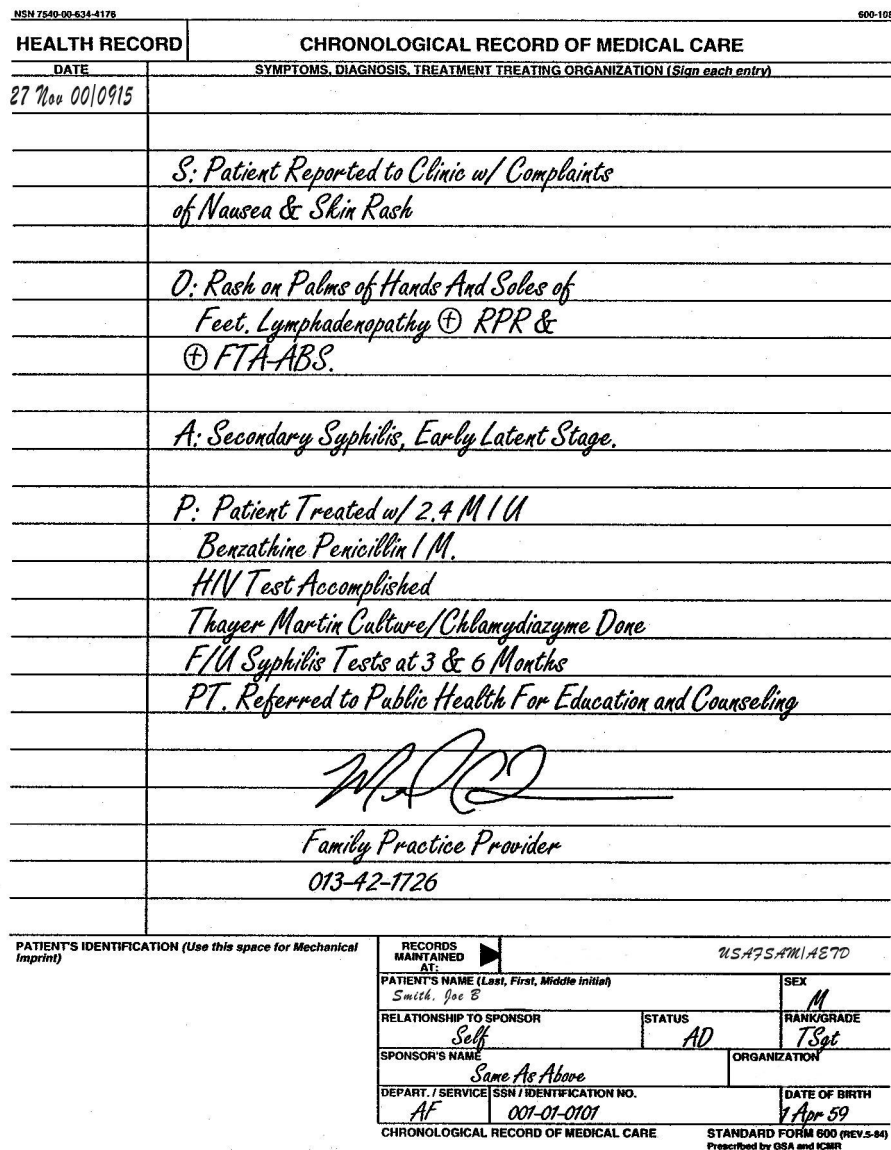 NSN 7540-00-634-4176 600-108
HEALTH RECORD CHRONOLOGICAL RECORD OF MEDICAL CARE
DATE SYMPTOMS, DIAGNOSIS, TREATMENT TREATING ORGANIZATION (Sign each entry)
27 Nov 00|0915
S: Patient Reported to Clinic w/ Complaints
of Nausea & Skin Rash
O: Rash on Palms of Hands And Soles of
Feet. Lymphadenopathy ⊕ RPR &
⊕ FTA-ABS.
A: Secondary Syphilis, Early Latent Stage.
P: Patient Treated w/ 2.4 M I U
Benzathine Penicillin I M.
HIV Test Accomplished
Thayer Martin Culture/Chlamydiazyme Done
F/U Syphilis Tests at 3 & 6 Months
PT. Referred to Public Health For Education and Counseling
Family Practice Provider
013-42-1726
PATIENT'S IDENTIFICATION (Use this space for Mechanical
Imprint)
RECORDS
MAINTAINED
AT:
USAFSAM|AETD
PATIENT'S NAME (Last, First, Middle initial) SEX
Smith, Joe B M
RELATIONSHIP TO SPONSOR STATUS RANK/GRADE
Self AD TSgt
SPONSOR'S NAME ORGANIZATION
Same As Above
DEPART. / SERVICE SSN / IDENTIFICATION NO. DATE OF BIRTH
AF 001-01-0101 1 Apr 59
CHRONOLOGICAL RECORD OF MEDICAL CARE STANDARD FORM 600 (REV.5-84)
Prescribed by GSA and ICMR